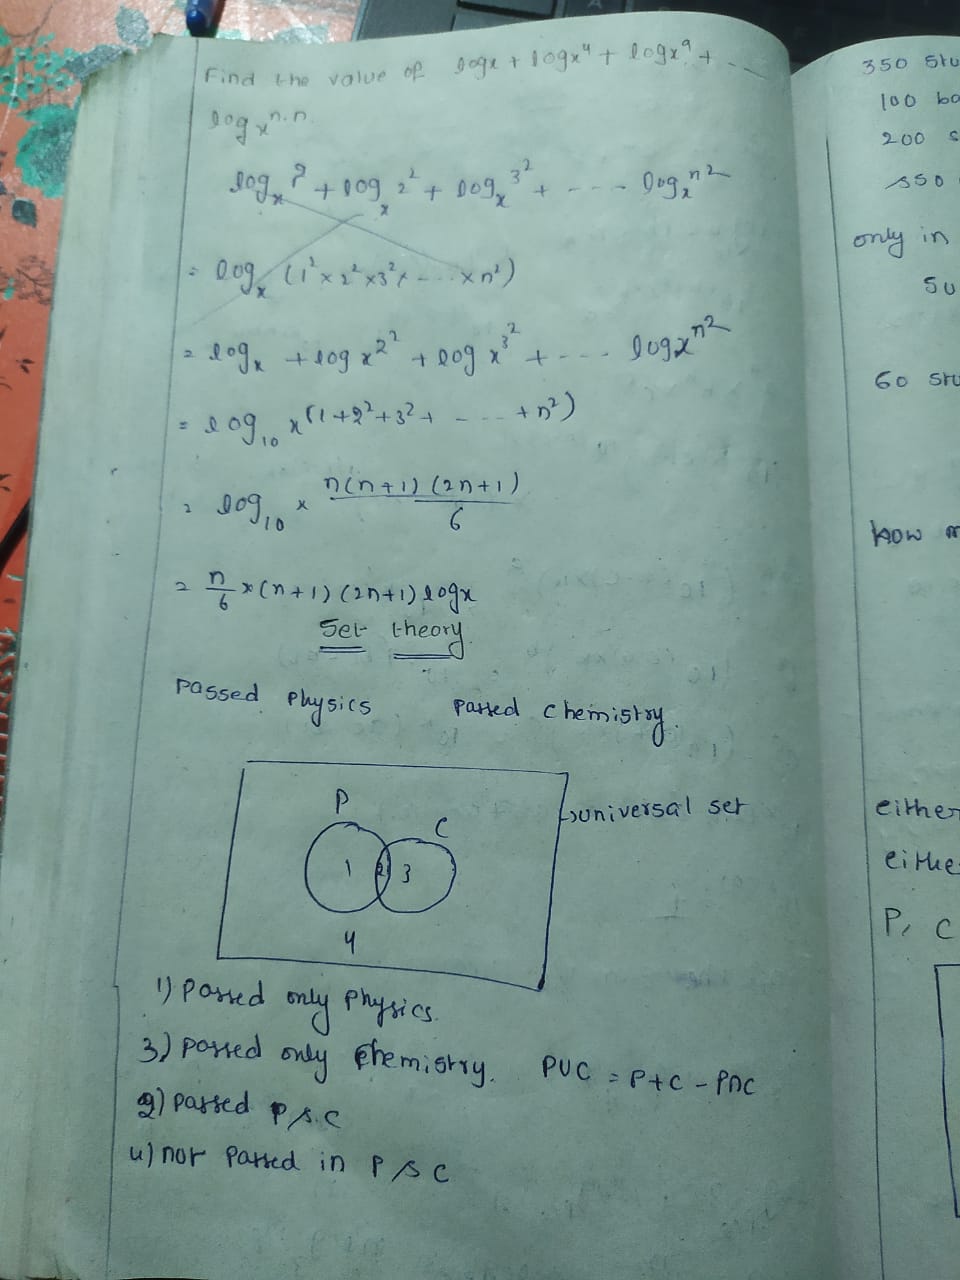 Find the value of logx + logx⁴ + logx⁹ + ...
log xⁿ·ⁿ
logₓ² + logₓ 2² + logₓ 3² + - - - - logₓ n²
= logₓ (1² × 2² × 3² × - ... × n²)
= logₓ + log x^2² + log x^3² + - - - . logx^n²
= log₁₀ x^(1+2²+3²+ - ... + n²)
= log₁₀ x^ n(n+1) (2n+1)
6
= n/6 × (n+1) (2n+1) logx
Set theory
Passed Physics Passed Chemistry.
universal set
P
C
1 2 3
4
1) Passed only Physics.
3) Passed only Chemistry. PUC = P+C - P∩C
2) Passed P & C
4) not Passed in P & C
350 Stu
100 ba
200 s
&50
only in
Su
60 Stu
how m
either
eithe
P, C